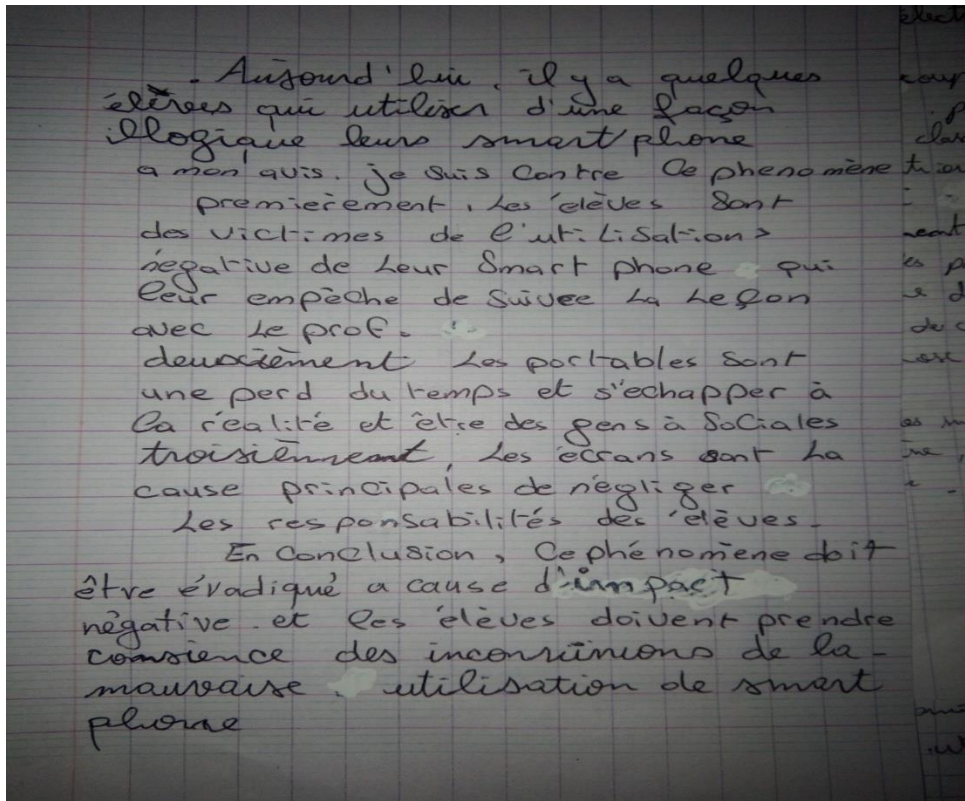 - Aujourd'hui, il y a quelques
élèves qui utiliser d'une façon
illogique leurs smart phone
a mon avis. je suis contre Ce phenomène
premierement, Les élèves sont
des victimes de l'utilisations
négative de Leur Smart phone qui
leur empèche de suivee La Leçon
avec Le prof.
deuxcièment Les portables sont
une perd du temps et s'echapper à
la réalité et être des gens à Sociales
troisiènnemt, Les écrans sont La
cause principales de négliger
Les responsabilités des élèves.
En Conclusion, Ce phénomène doit
être évadiqué a cause d'impact
négative. et les élèves doivent prendre
consience des de la-
mauvaise utilisation de smart
phone